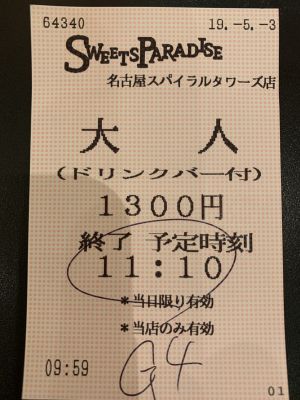 64340 19.-5.-3
SWEETSPARADISE
名古屋スパイラルタワーズ店
大 人
(ドリンクバー付)
1300円
終了 予定時刻
11:10
*当日限り有効
*当店のみ有効
09:59
G4
01